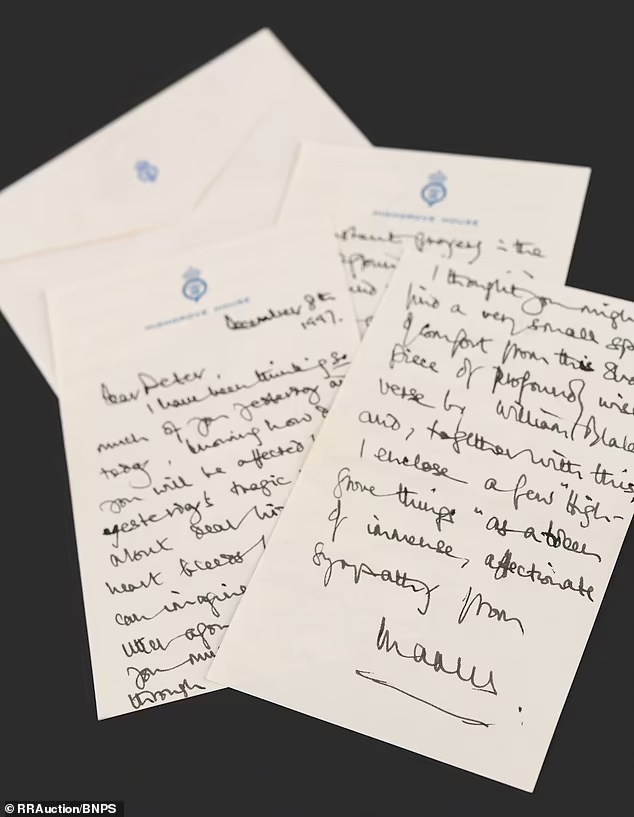 HIGHGROVE HOUSE
December 8th
1997.
Dear Peter,
I have been thinking so
much of you yesterday
today, knowing how
you will be affected
yesterday's tragic
about dear
heart bleeds
can imagine
utter
you
through
HIGHGROVE HOUSE
the
I thought you might
find a very small
of comfort from this
piece of profound
verse by William Blake
and, together with this,
I enclose a few "High-
grove things" as a token
of immense, affectionate
sympathy from
Charles
© RRAuction/BNPS